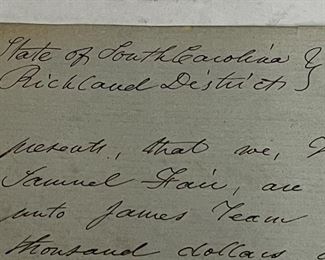 State of South Carolina }
Richland District }
presents, that we,
Samuel Fair, are
unto James Team
thousand dollars